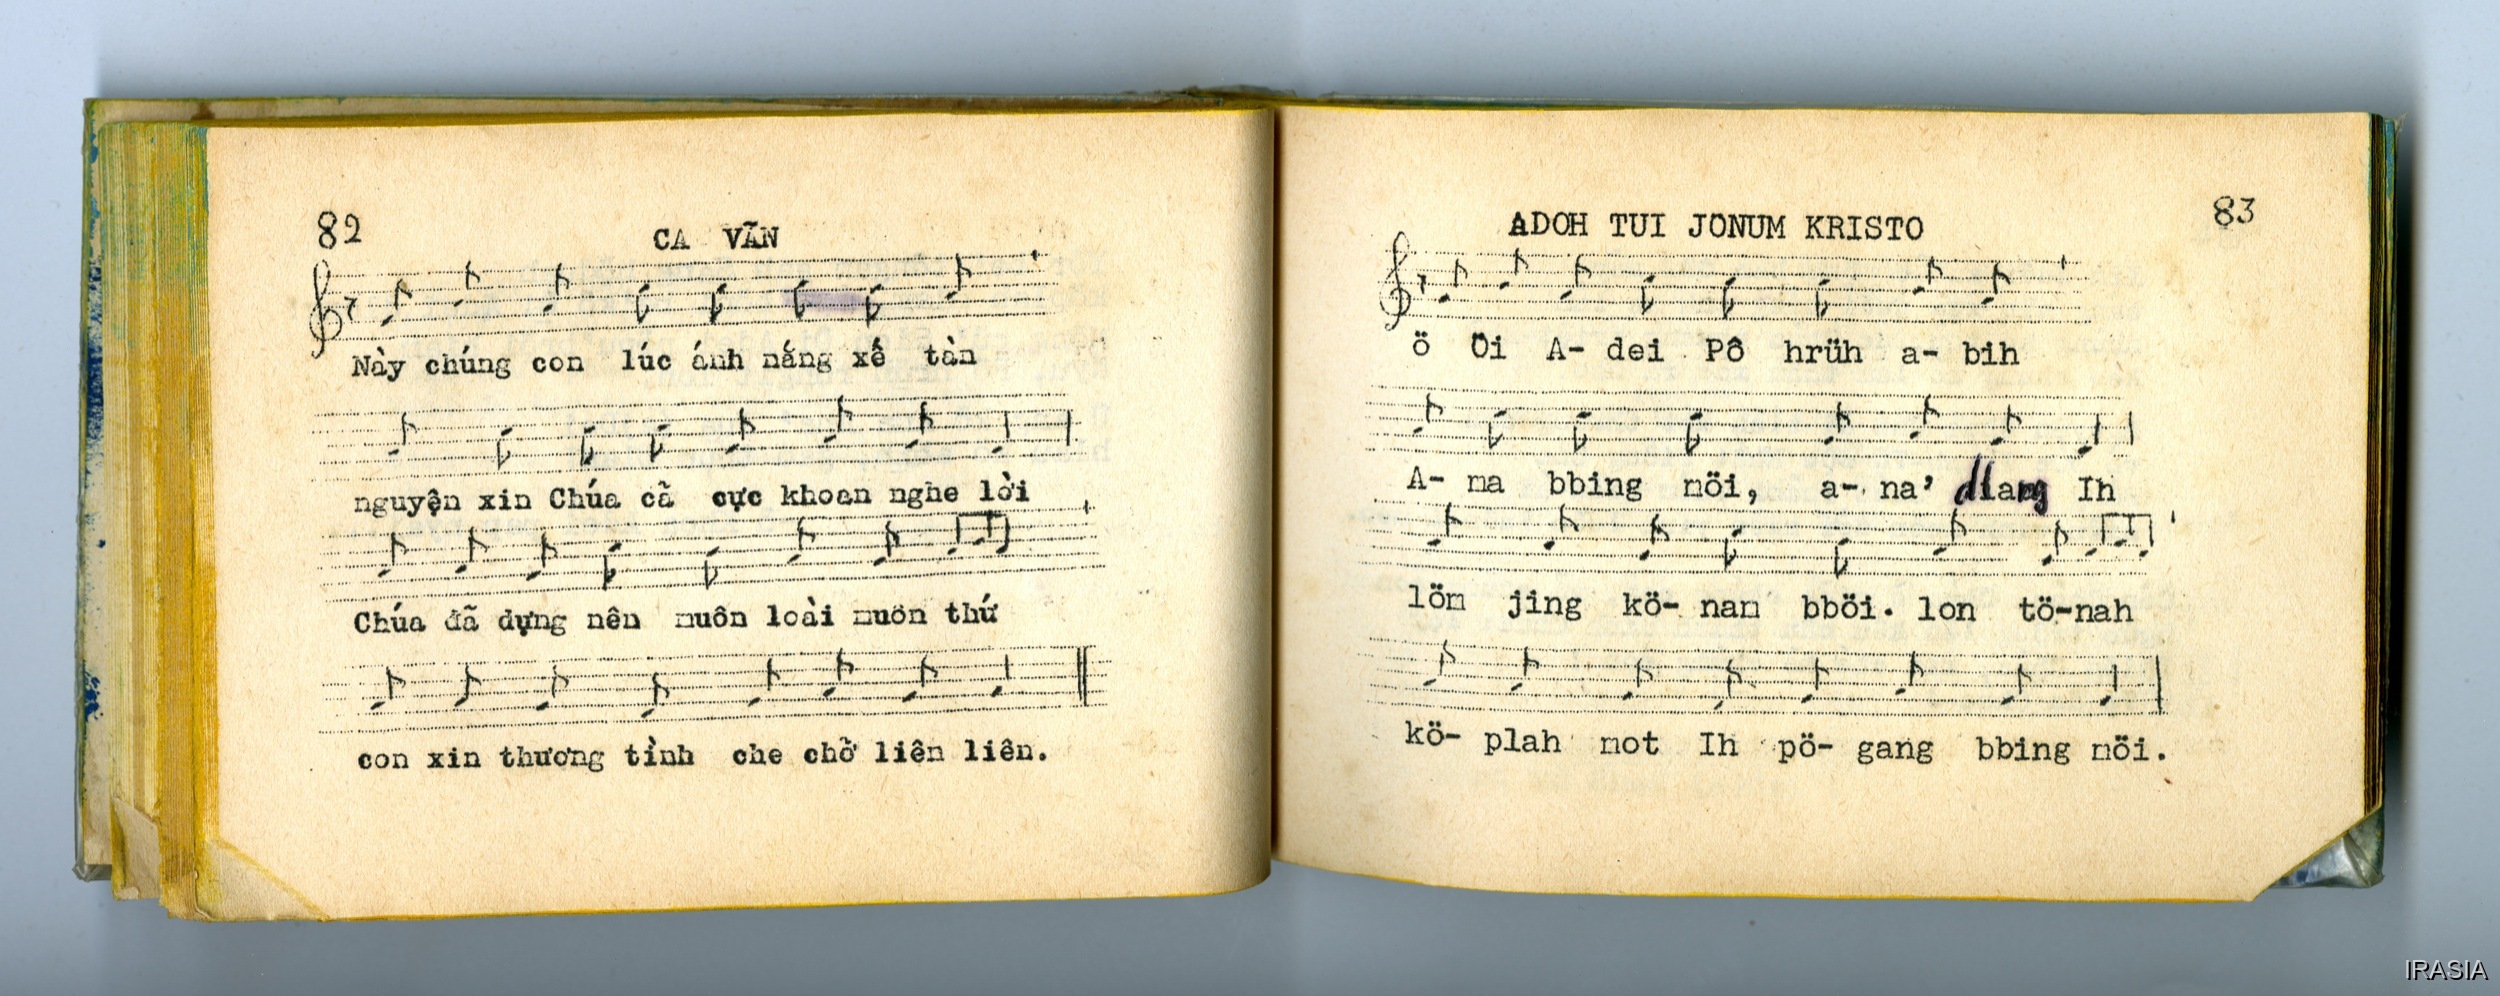 82
CA VÃN
Này chúng con lúc ánh nắng xế tàn
nguyện xin Chúa cả cực khoan nghe lời
Chúa đã dựng nên muôn loài muôn thứ
con xin thương tình che chở liên liên.
83
ADOH TUI JÖNUM KRISTO
ö Öi A- dei Pô hrüh a- bih
A- ma bbing möi, a- na' dlang Ih
löm jing kö- nam bböi. lon tö-nah
kö- plah mot Ih pö- gang bbing möi.
IRASIA